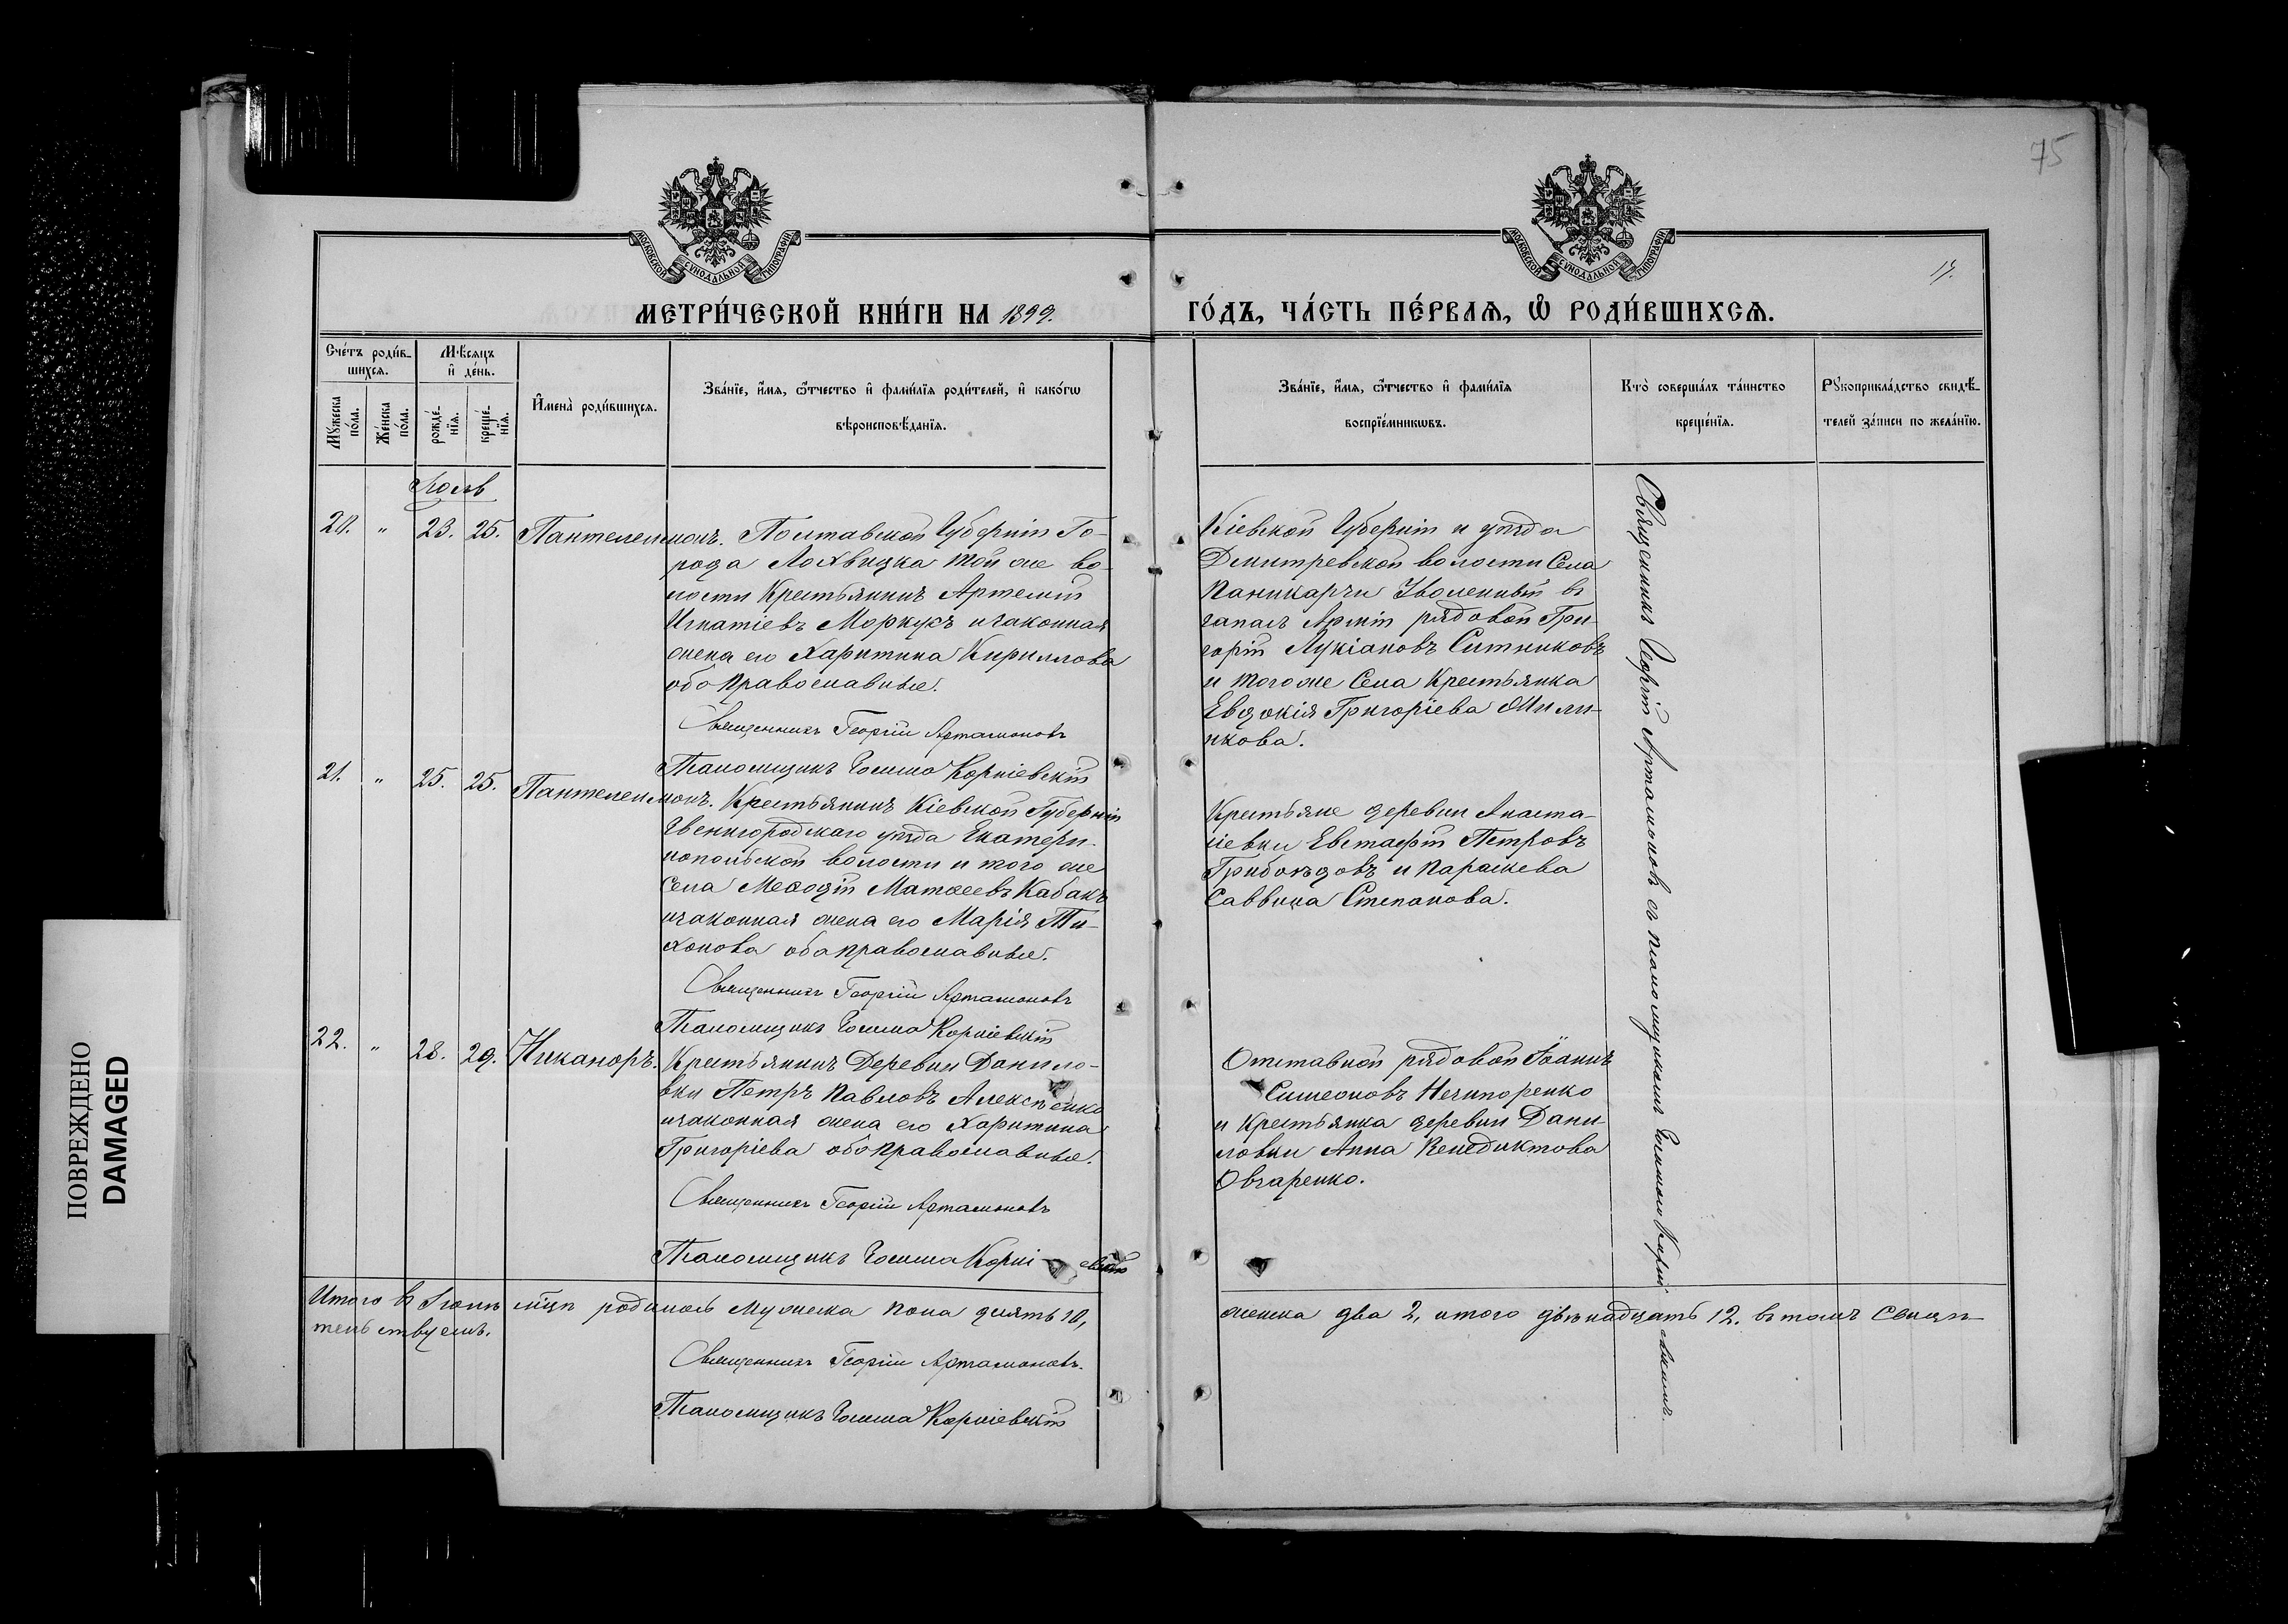 75
МОСКОВСКОЙ СѴНОДАЛЬНОЙ ТИПОГРАФІИ
МОСКОВСКОЙ СѴНОДАЛЬНОЙ ТИПОГРАФІИ
17.
МЕТРИ́ЧЕСКОЙ КНИ́ГИ НА 1899.
ГО́ДЪ, ЧА́СТЬ ПЕ́РВАѦ, Ѽ РОДИ́ВШИХСѦ.
Сче́тъ роди́в-
шихсѧ.
Мѣ́сѧцъ
и҆ де́нь.
Мꙋ́жеска
по́ла.
Же́нска
по́ла.
рожде́-
нїѧ.
креще́-
нїѧ.
И҆мена̀ роди́вшихсѧ.
Зва́нїе, и҆́мѧ, ѻ҆́тчество и҆ фами́лїѧ роди́телей, и҆ како́гѡ
вѣроисповѣ́данїѧ.
Зва́нїе, и҆́мѧ, ѻ҆́тчество и҆ фами́лїѧ
воспрїе́мникѡвъ.
Кто̀ соверша́лъ та́инство
креще́нїѧ.
Рꙋкоприкла́дство свидѣ́-
телей за́писи по жела́нїю.
Іюль
20. " 23. 25. Пантелеимонъ. Полтавской Губерніи Го-
рода Лохвицка той же во-
лости Крестьянинъ Артемій
Игнатіевъ Моркусъ и законная
жена его Харитина Кириллова
оба православные.
Священникъ Георгій Артамоновъ
Псаломщикъ Козьма Корніевскій
Кіевской Губерніи и уѣзда
Дмитревской волости Села
Паникарчи Уволенный въ
запасъ Арміи рядовой Гри-
горій Лукіановъ Ситниковъ
и того же Села Крестьянка
Евдокія Григоріева
нкова.
21. " 25. 25. Пантелеимонъ. Крестьянинъ Кіевской Губерніи
Звенигородскаго уѣзда Екатери-
нопольской волости и того же
Села Меѳодій Матѳеевъ Кабакъ
и законная жена его Марія Ти-
хонова оба православные.
Священникъ Георгій Артамоновъ
Псаломщикъ Козьма Корніевскій
Крестьяне деревни Анаста-
сіевки Евстафій Петровъ
Грибоѣдовъ и Параскева
Саввина Степанова.
22. " 28. 29. Никаноръ. Крестьянинъ Деревни Данило-
вки Петръ Павловъ Алексѣенко
и законная жена его Харитина
Григоріева оба православные.
Священникъ Георгій Артамоновъ
Псаломщикъ Козьма Корніевскій
Отставной рядовой Іоаннъ
Симеоновъ Нечипоренко
и Крестьянка деревни Дани-
ловки Анна Венедиктова
Овчаренко.
Священникъ Георгій Артамоновъ съ псаломщикомъ Козьмою Корніевскимъ.
Итого въ Іюлѣ мѣсцѣ родилось мужеска пола десять 10, женска два 2, итого двѣнадцать 12. въ томъ Свидѣ-
тельствуемъ.
Священникъ Георгій Артамоновъ.
Псаломщикъ Козьма Корніевскій
ПОВРЕЖДЕНО
DAMAGED